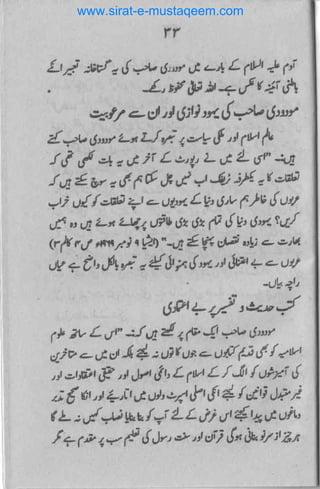 www.sirat-e-mustaqeem.com
۳۳
آدم علیہ السلام کے بارے میں مودودی صاحب کی یہ گستاخانہ تعبیر انکے
باطنی آئینہ کا عکس ہے اللہ تعالیٰ محفوظ رکھے۔
مودودی صاحب کی یہود نوازی اور ان سے مرعوبیت
عالم اسلام اور ملکی سیاست پر تبصرہ کرتے ہوئے مودودی صاحب کہتے
ہیں:۔ "اسی لئے میں نے رپورٹ کے آخر میں یہ بات لکھی تھی کہ
تعلقات کا یہ یکطرفہ ٹریفک اب نہیں چل سکتا ہم بھی یہ سوچ سکتے ہیں کہ
عربوں کی خاطر ہم ساری دنیا کے یہودیوں سے اپنے تعلقات کو کیوں خراب
کریں؟ یہودی دنیا کی تمام بڑی بڑی طاقتوں پر چھائے ہوئے ہیں وہ ہمیں
بھارت سے زیادہ نقصان پہنچا سکتے ہیں"۔ (ایشیا ۹ نومبر ۱۹۶۹ء ص ۴ کالم ۳)
عربوں سے بے اعتنائی اور یہود کی ہمنوائی کیلئے یہ تبصرہ بالکل واضح ہے عیاں
راچہ بیاں۔
کتب حدیث و تفسیر پر بے اعتمادی
مودودی صاحب ایک مقام پر لکھتے ہیں:۔ "اس کے ساتھ علوم
اسلامیہ کو بھی قدیم کتابوں سے جوں کا توں نہ لیجئے بلکہ ان میں سے متاخرین
کی آمیزشوں کو الگ کر کے اسلام کے دائمی اصول اور حقیقی اعتقادات اور
غیر متبدل قوانین کو لیجئے انکی اصلی اسپرٹ دلوں میں اتاریئے اور انکا صحیح تدبر
دماغوں میں پیدا کیجئے اس غرض کے لئے آپ کو بنا بنایا نصاب کہیں نہ ملے گا
ہر چیز از سر نو بنانی ہوگی قرآن اور سنت رسول کی تعلیم سب پر مقدم ہے مگر